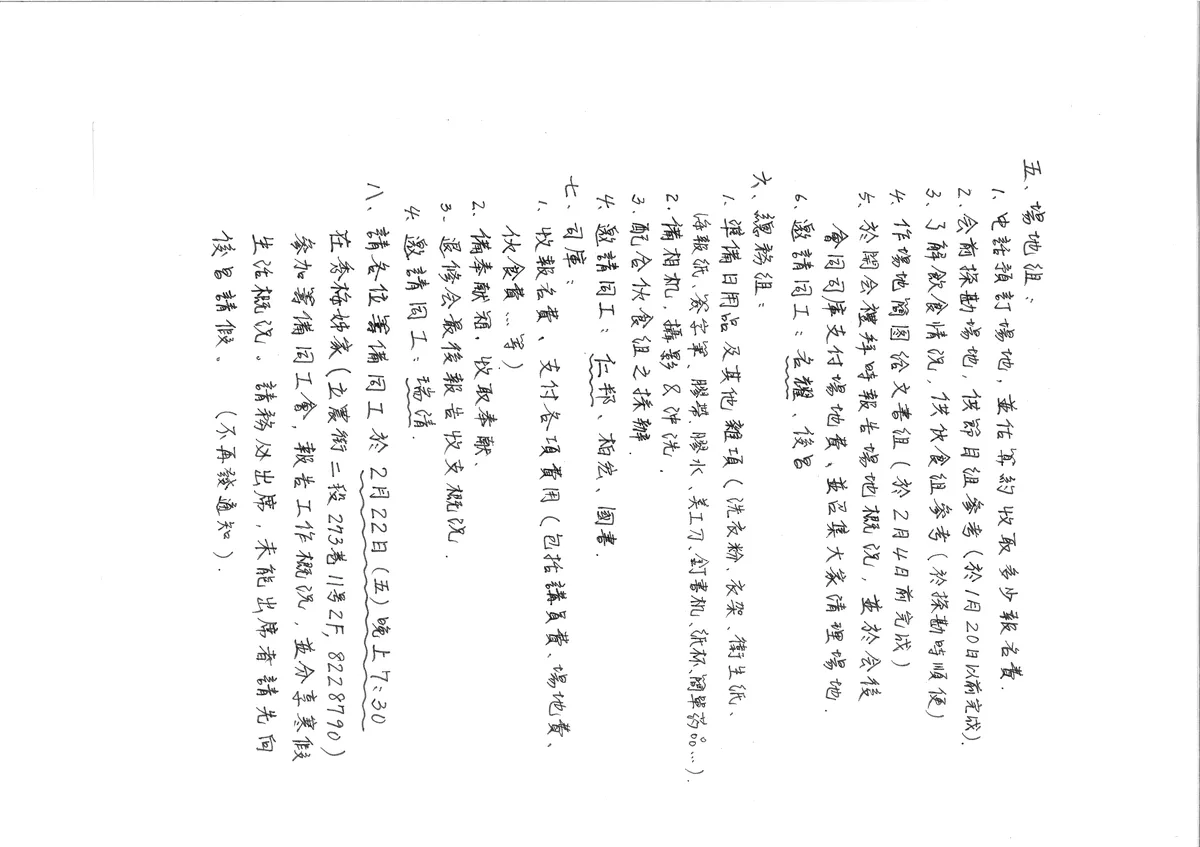 五、場地組：
1. 电話預訂場地，並估算約收取多少報名費.
2. 会前探勘場地，供節目組參考(於1月20日以前完成).
3. 了解飲食情況，供伙食組參考(於探勘時順便)
4. 作場地簡图給文書組(於2月4日前完成)
5. 於開会禮拜時報告場地概況，並於会後
會同司庫支付場地費、並召集大家清理場地.
6. 邀請同工：名耀、俊昌
六、總務組：
1. 準備日用品及其他雜項(洗衣粉、衣架、衛生紙、
海報紙、簽字筆、膠帶.膠水、美工刀、釘書机、紙杯、簡單药品…).
2. 備相机，攝影＆沖洗.
3. 配合伙食組之採辦.
4. 邀請同工：仁邦、柏宏、國書.
七、司庫：
1. 收報名費、支付各項費用(包括講員費、場地費、
伙食費…等)
2. 備奉献箱，收取奉献.
3. 退修会最後報告收支概況.
4. 邀請同工：瑞清.
八、請各位籌備同工於2月22日(五)晚上7:30
在秀梅姊家(立農街二段273巷11号2F, 8228790)
參加籌備同工會，報告工作概況，並分享寒假
生活概況。請務必出席，未能出席者請先向
俊昌請假、(不再發通知).